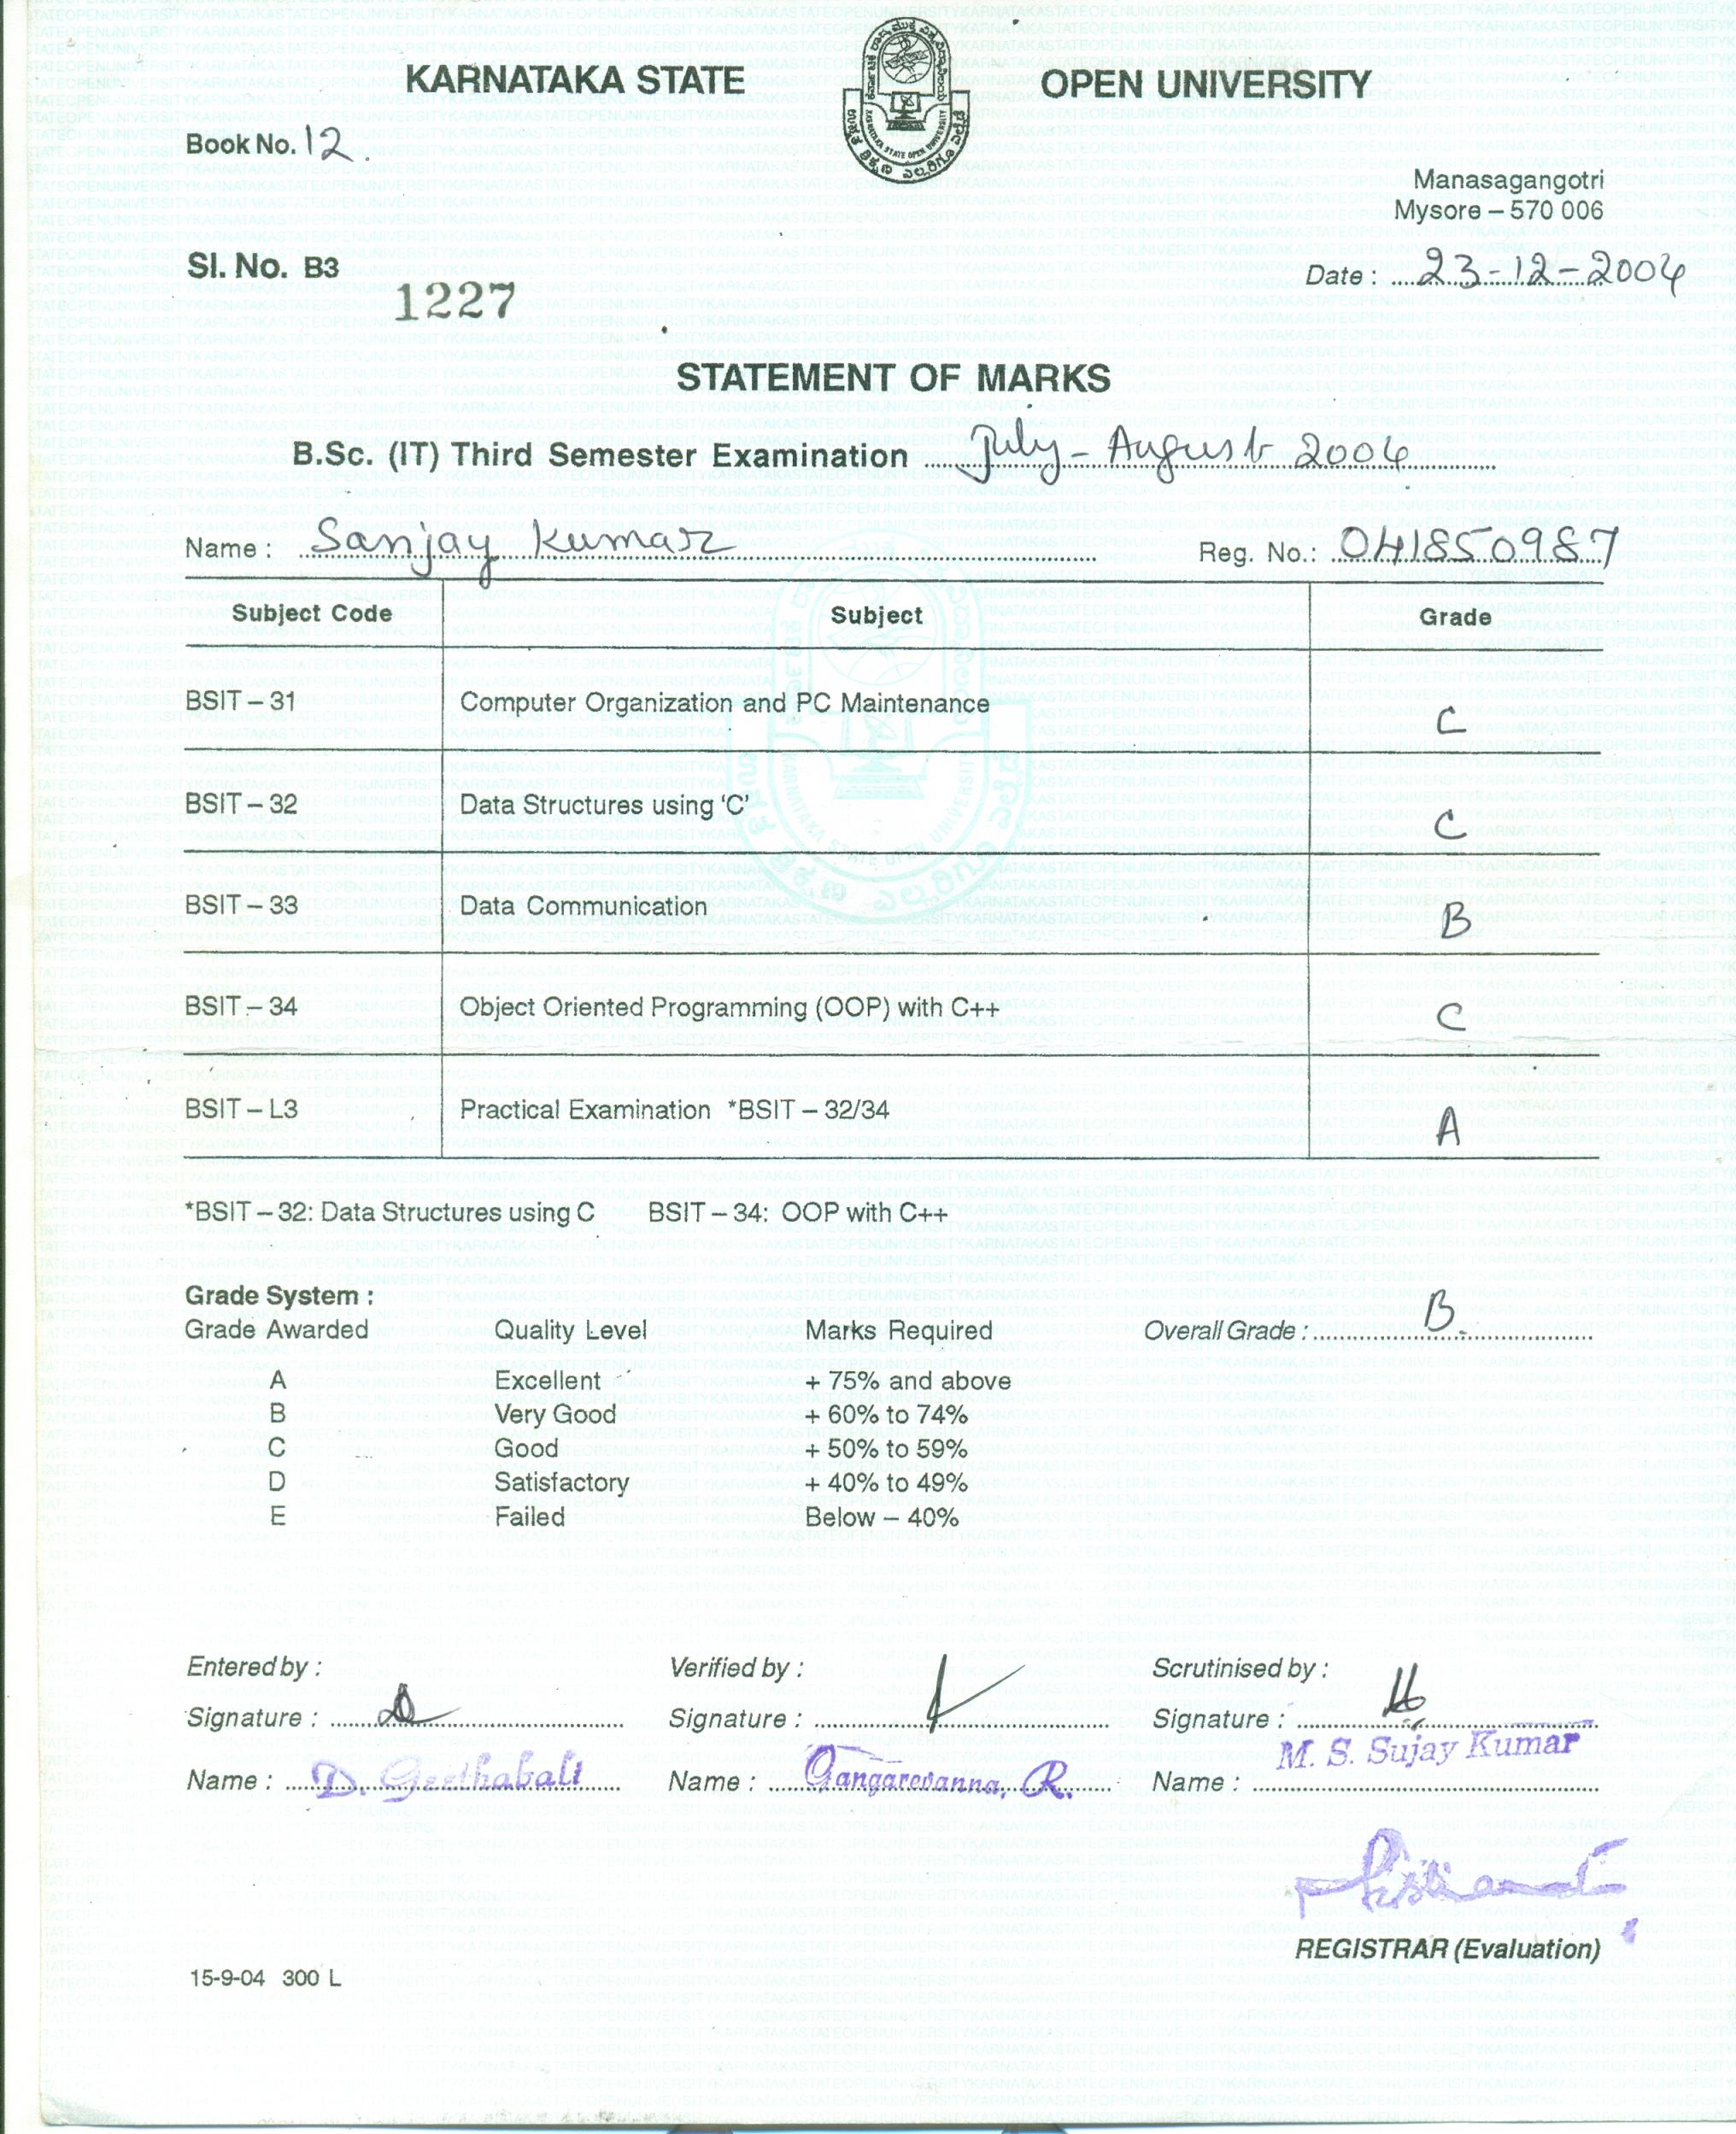 KARNATAKA STATE OPEN UNIVERSITY
Book No. 12.
Manasagangotri
Mysore – 570 006
Sl. No. B3
1227
Date : 23-12-2004
STATEMENT OF MARKS
B.Sc. (IT) Third Semester Examination July - August 2004
Name : Sanjay Kumar Reg. No.: 0418S0987
Subject Code Subject Grade
BSIT – 31 Computer Organization and PC Maintenance C
BSIT – 32 Data Structures using ‘C’ C
BSIT – 33 Data Communication B
BSIT – 34 Object Oriented Programming (OOP) with C++ C
BSIT – L3 Practical Examination *BSIT – 32/34 A
*BSIT – 32: Data Structures using C BSIT – 34: OOP with C++
Grade System :
Grade Awarded Quality Level Marks Required Overall Grade : B.
A Excellent + 75% and above
B Very Good + 60% to 74%
C Good + 50% to 59%
D Satisfactory + 40% to 49%
E Failed Below – 40%
Entered by : Verified by : Scrutinised by :
Signature : Signature : Signature :
M. S. Sujay Kumar
Name : D. Geethabali Name : Gangarevanna, R. Name :
REGISTRAR (Evaluation)
15-9-04 300 L